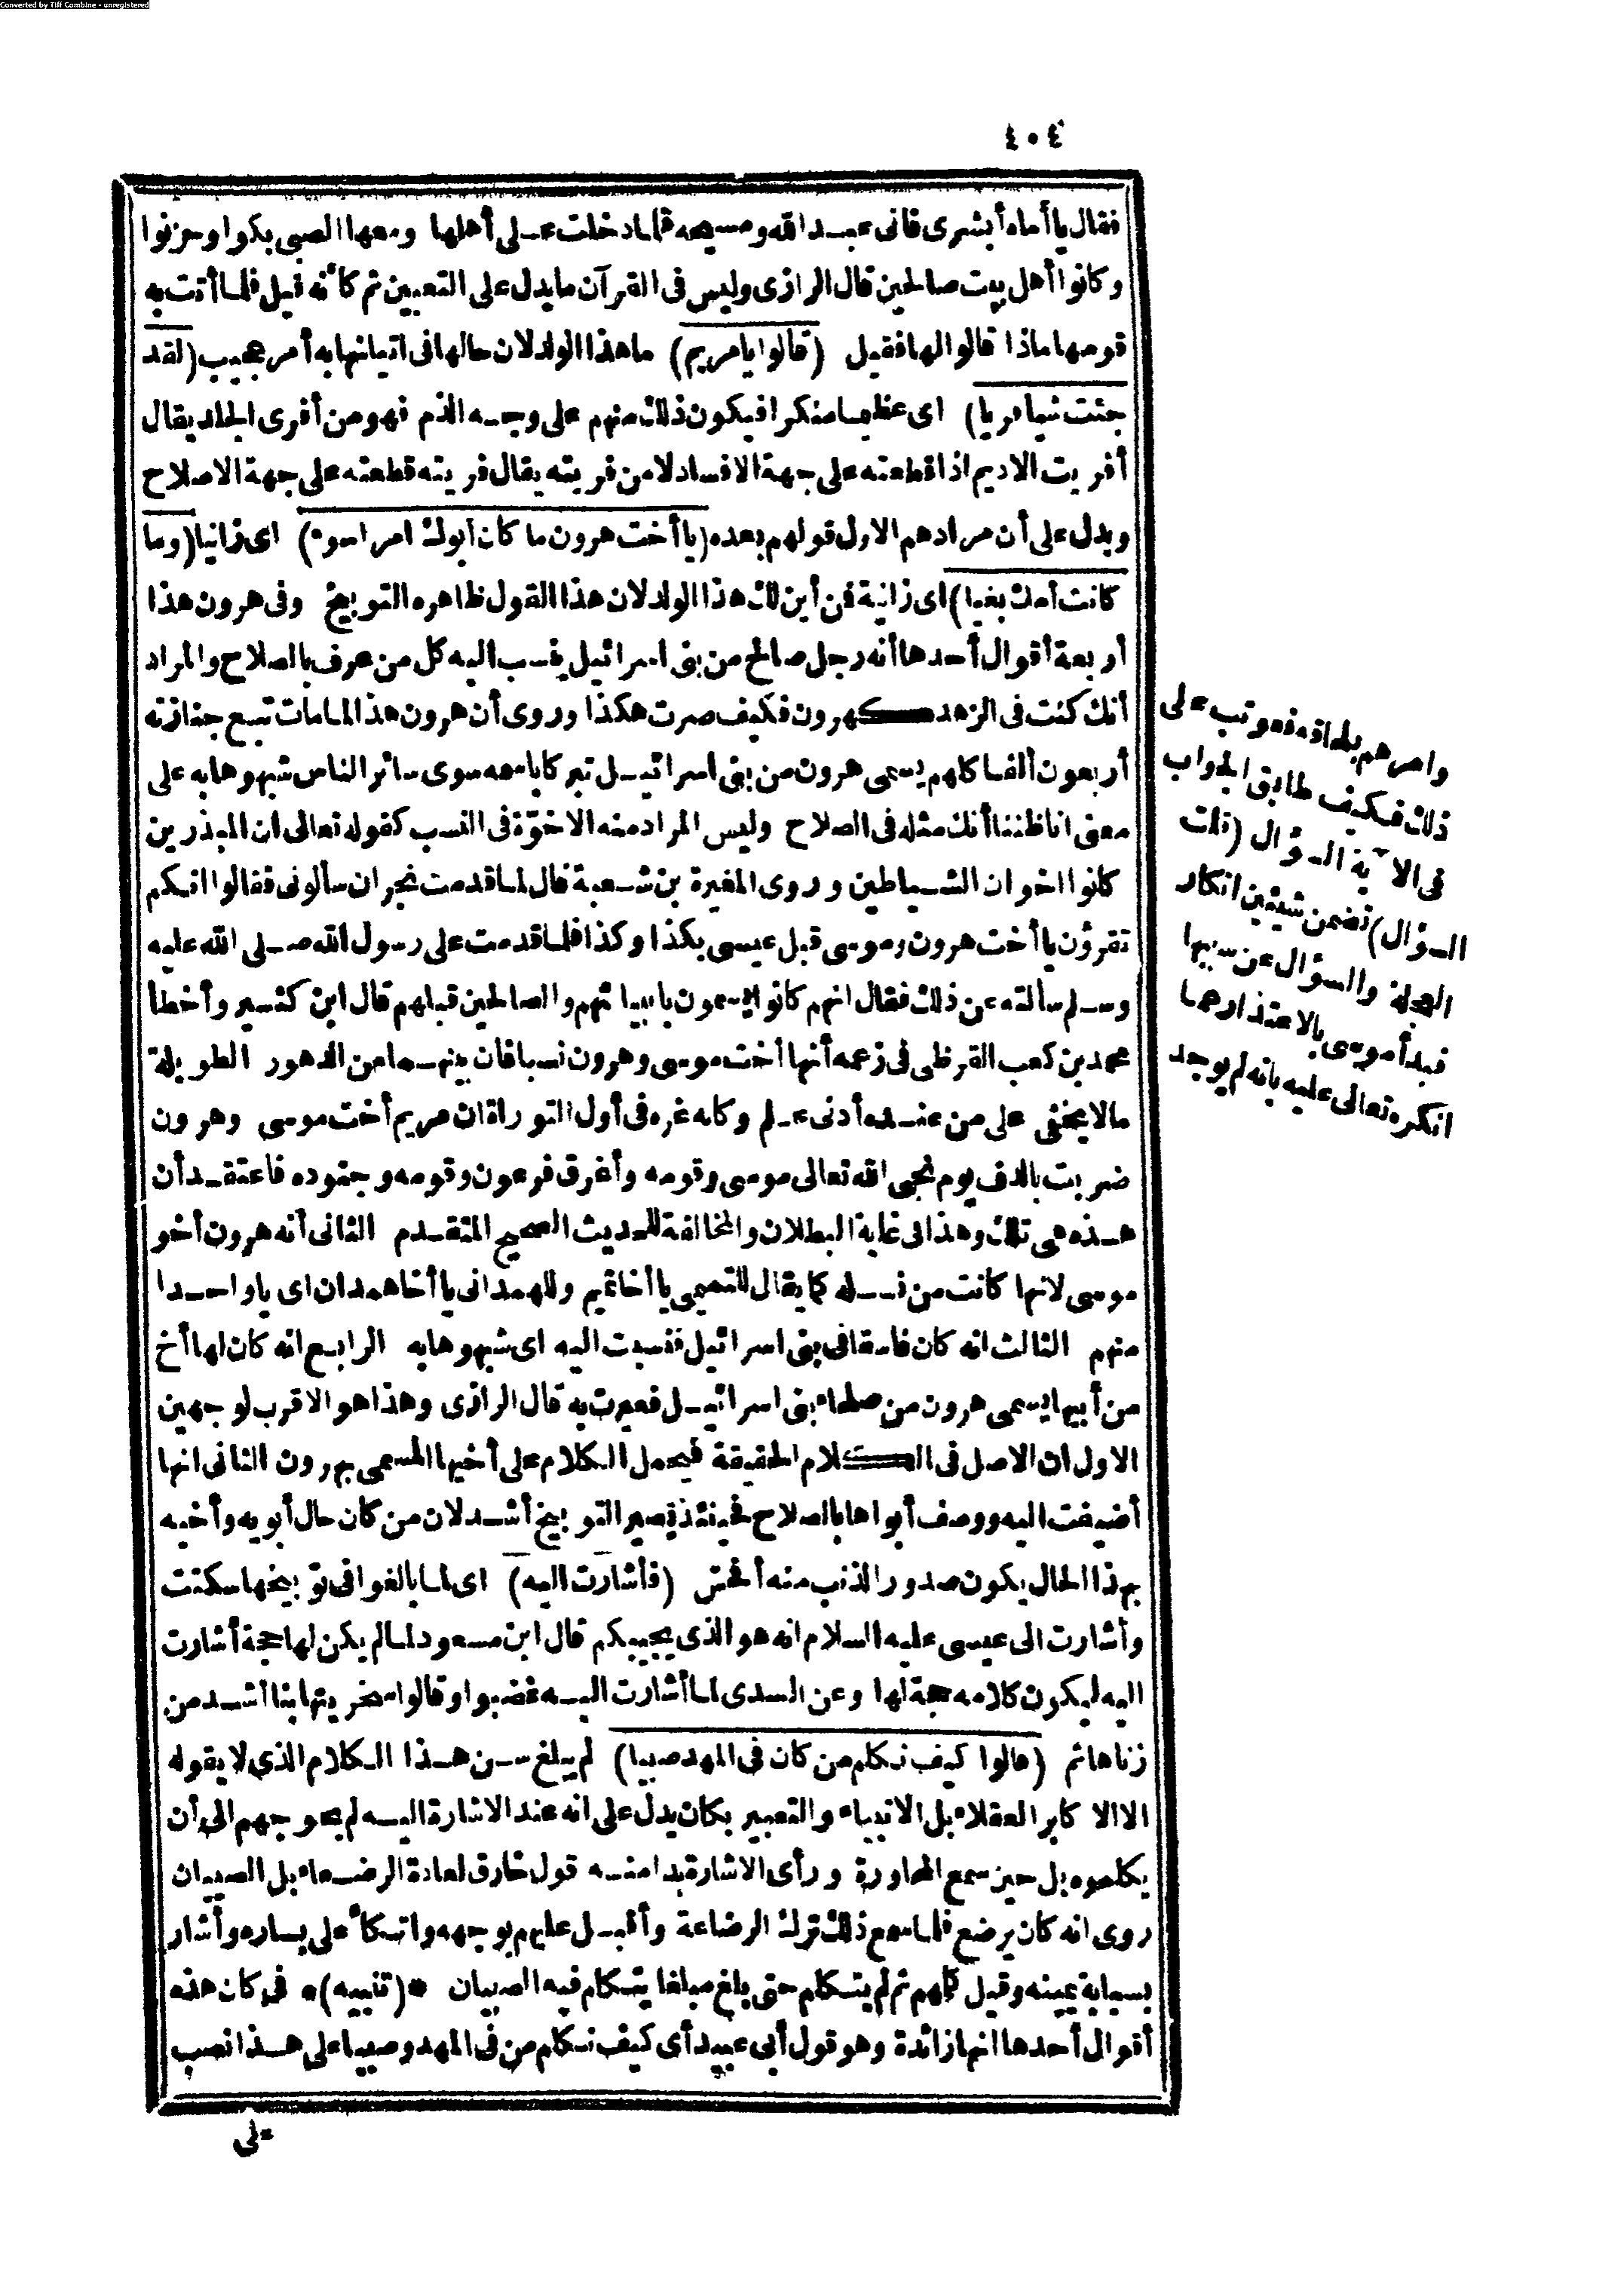 Converted by Tiff Combine - unregistered
٤٠٤
فقال يا أماه أبشرى فانى عبد الله ومسيحه فلما دخلت على أهلها ومعها الصبى بكوا وحزنوا
وكانوا أهل بيت صالحين قال الرازى وليس فى القرآن ما يدل على التعيين ثم كأنه قيل فلما أتت به
قومها ماذا قالوا لها فقيل (قالوا يا مريم) ما هذا الولد لان حالها فى اتيانها به أمر عجيب (لقد
جئت شيأ فريا) اى عظيما منكرا فيكون ذلك منهم على وجه الذم فهو من أفرى الجلد يقال
أفريت الاديم اذا قطعته على جهة الافساد لا من فريته يقال فريته قطعته على جهة الاصلاح
ويدل على أن مرادهم الاول قولهم بعده (يا أخت هرون ما كان أبوك امرأ سوء) اى زانيا (وما
كانت أمك بغيا) اى زانية فمن أين لك هذا الولد لان هذا القول ظاهره التوبيخ وفى هرون هذا
أربعة أقوال أحدها أنه رجل صالح من بنى اسرائيل ينسب اليه كل من عرف بالصلاح والمراد
أنك كنت فى الزهد كهرون فكيف صرت هكذا وروى أن هرون هذا لما مات تبع جنازته
أربعون ألفا كلهم يسمى هرون من بنى اسرائيل تبركا باسمه سوى سائر الناس شبهوها به على
معنى انا ظننا أنك مثله فى الصلاح وليس المراد منه الاخوّة فى النسب كقوله تعالى ان المبذرين
كانوا اخوان الشياطين وروى المغيرة بن شعبة قال لما قدمت نجران سألونى فقالوا انكم
تقرؤن يا أخت هرون وموسى قبل عيسى بكذا وكذا فلما قدمت على رسول الله صلى الله عليه
وسلم سألته عن ذلك فقال انهم كانوا يسمون بانبيائهم والصالحين قبلهم قال ابن كثير وأخطأ
محمد بن كعب القرظى فى زعمه أنها أخت موسى وهرون نسبا فان بينهما من الدهور الطويلة
مالا يخفى على من عنده أدنى علم وكانه غره فى أول التوراة ان مريم أخت موسى وهرون
ضربت بالدف يوم نجى الله تعالى موسى وقومه وأغرق فرعون وقومه وجنوده فاعتقد أن
هذه هى تلك وهذا فى غاية البطلان والمخالفة للحديث الصحيح المتقدم الثانى أنه هرون أخو
موسى لانها كانت من نسله كما يقال للتميمى يا أخا تميم وللهمدانى يا أخا همدان اى يا واحدا
منهم الثالث انه كان فاسقا فى بنى اسرائيل فنسبت اليه اى شبهوها به الرابع انه كان لها أخ
من أبيها يسمى هرون من صلحاء بنى اسرائيل فعيرت به قال الرازى وهذا هو الاقرب لوجهين
الاول ان الاصل فى الكلام الحقيقة فيحمل الكلام على أخيها المسمى بهرون الثانى انها
أضيفت اليه ووصف أبواها بالصلاح فحينئذ يصير التوبيخ أشد لان من كان حال أبويه وأخيه
بهذا الحال يكون صدور الذنب منه أفحش (فأشارت اليه) اى لما بالغوا فى توبيخها سكتت
وأشارت الى عيسى عليه السلام انه هو الذى يجيبكم قال ابن مسعود لما لم يكن لها حجة أشارت
اليه ليكون كلامه حجة لها وعن السدى لما أشارت اليه غضبوا وقالوا سخريتها بنا أشد من
زناها ثم (قالوا كيف نكلم من كان فى المهد صبيا) لم يبلغ سن هذا الكلام الذى لا يقوله
الا الا كابر العقلاء بل الانبياء والتعبير بكان يدل على انه عند الاشارة اليه لم يحوجهم الى أن
يكلموه بل حين سمع المحاورة ورأى الاشارة بدا منه قول خارق لعادة الرضعاء بل الصبيان
روى انه كان يرضع فلما سمع ذلك ترك الرضاعة وأقبل عليهم بوجهه واتكأ على يساره وأشار
بسبابة يمينه وقيل كلهم ثم لم يتكلم حتى بلغ مبلغا يتكلم فيه الصبيان *(تنبيه)* فى كان هذه
أقوال أحدها انها زائدة وهو قول أبى عبيد أى كيف نكلم من فى المهد وصبيا على هذا نصب
على
وامرهم بلحاقه فعوتب على
ذلك فكيف طابق الجواب
فى الآية السؤال (قلت
السؤال) تضمن شيئين انكار
العجلة والسؤال عن سببها
فبدأ موسى بالاعتذار عما
انكره تعالى عليه بانه لم يوجد